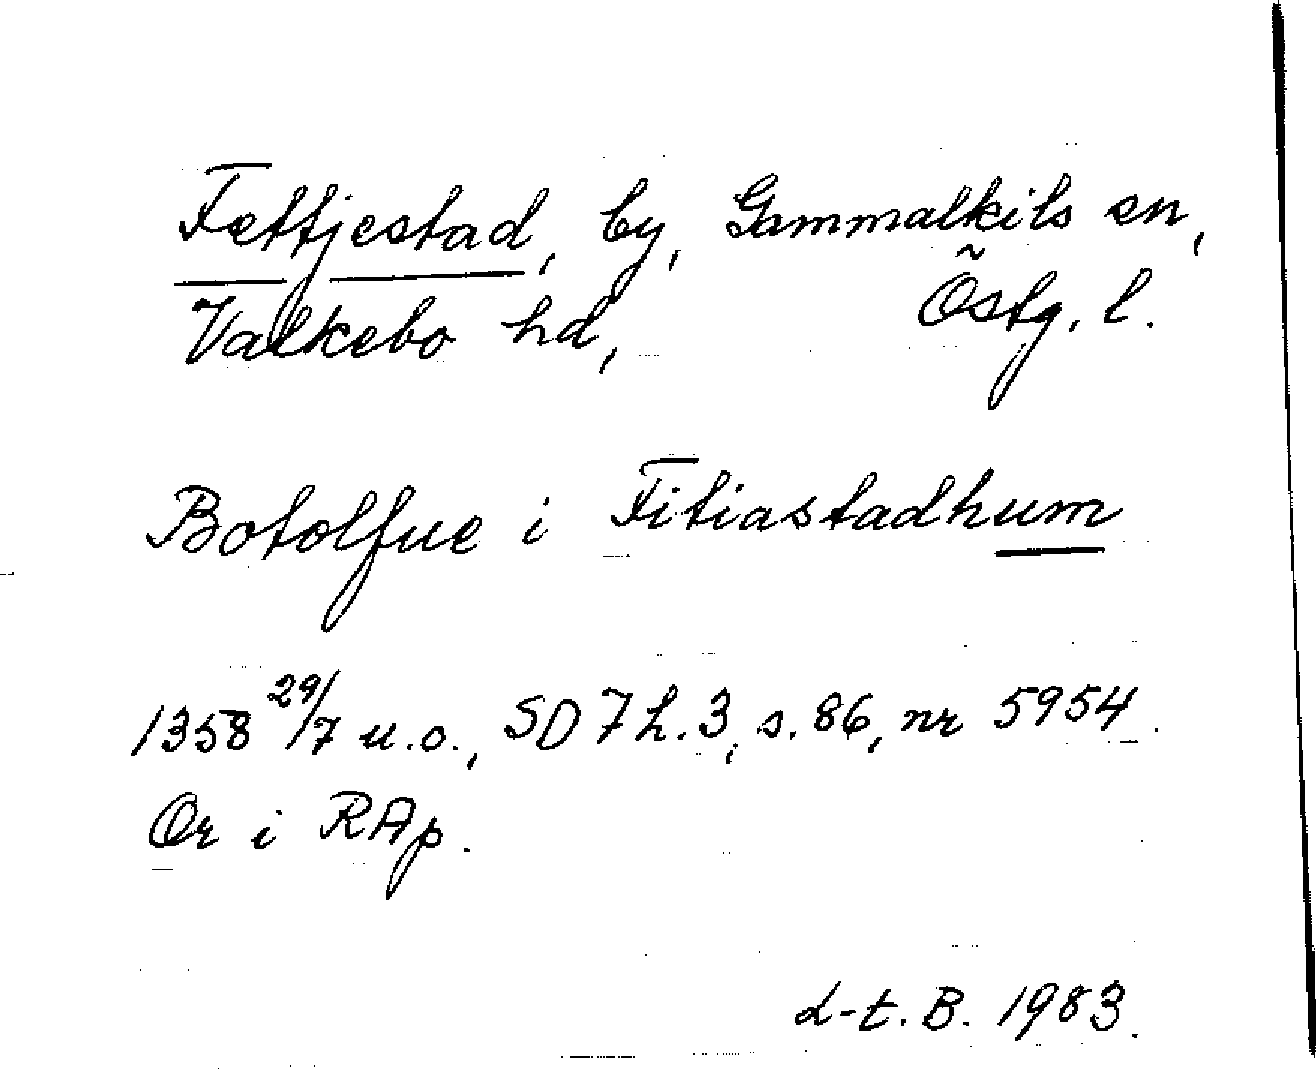 Fettjestad, by, Gammalkils sn,
Valkebo hd, Östg. l.
Botolfue i Fitiastadhum
1358 29/7 u.o., SD 7 h. 3, s. 86, nr 5954.
Or i RAp.
L-t. B. 1983.